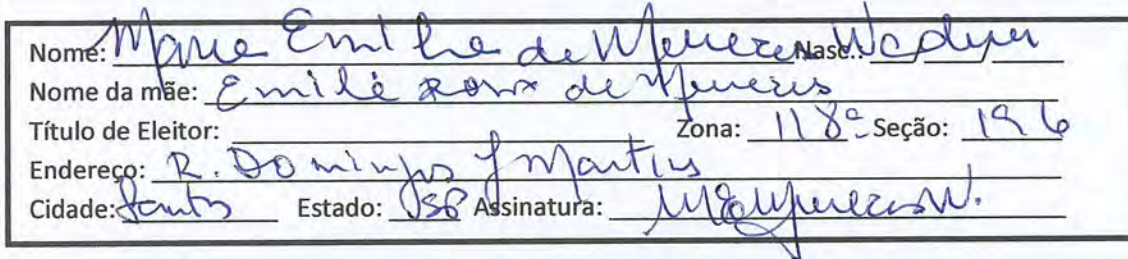 Nome: Maria Emilha de Menezes Nasc.:
Nome da mãe: Emilé Roux de Menezes
Título de Eleitor: Zona: 118ª Seção: 196
Endereço: R. Domingos J Martins
Cidade: Santos Estado: SP Assinatura: